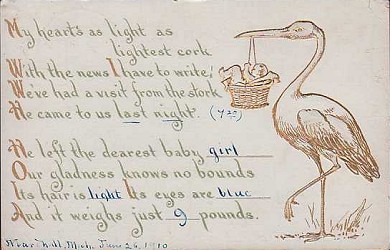 My heart's as light as
lightest cork
With the news I have to write,
We've had a visit from the stork
He came to us last night. (7 25)
He left the dearest baby girl
Our gladness knows no bounds
Its hair is light Its eyes are blue
And it weighs just 9 pounds.
Mich. June 26, 1910